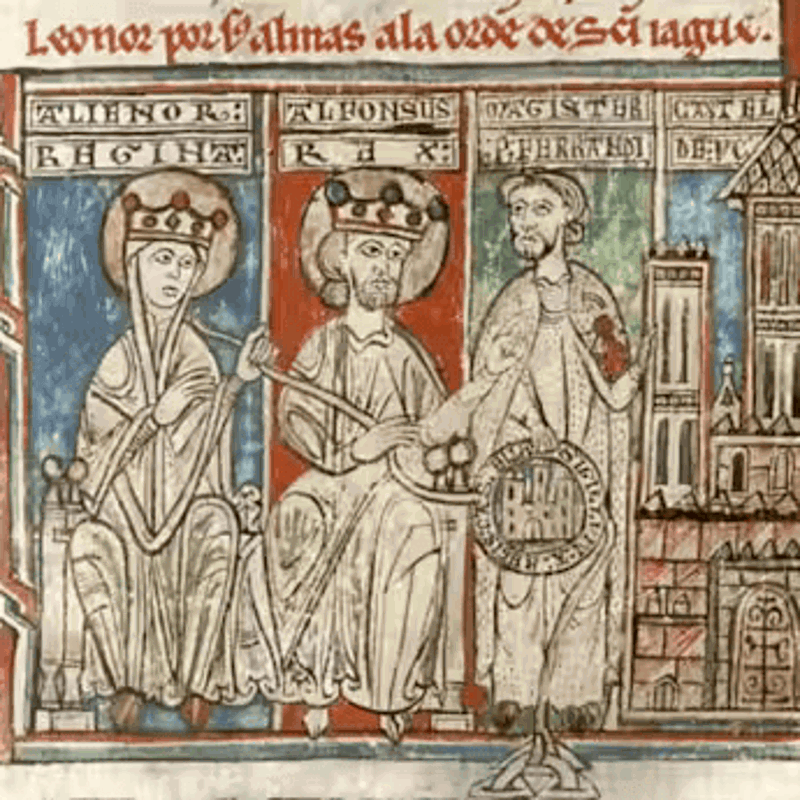 Leonor por s̃ almas ala ordẽ de Sc̃i iague.
ALIENOR:
REGINA:
ALFONSUS
REX:
MAGISTER
:P. FERRANDI
CASTEL
DE: UC